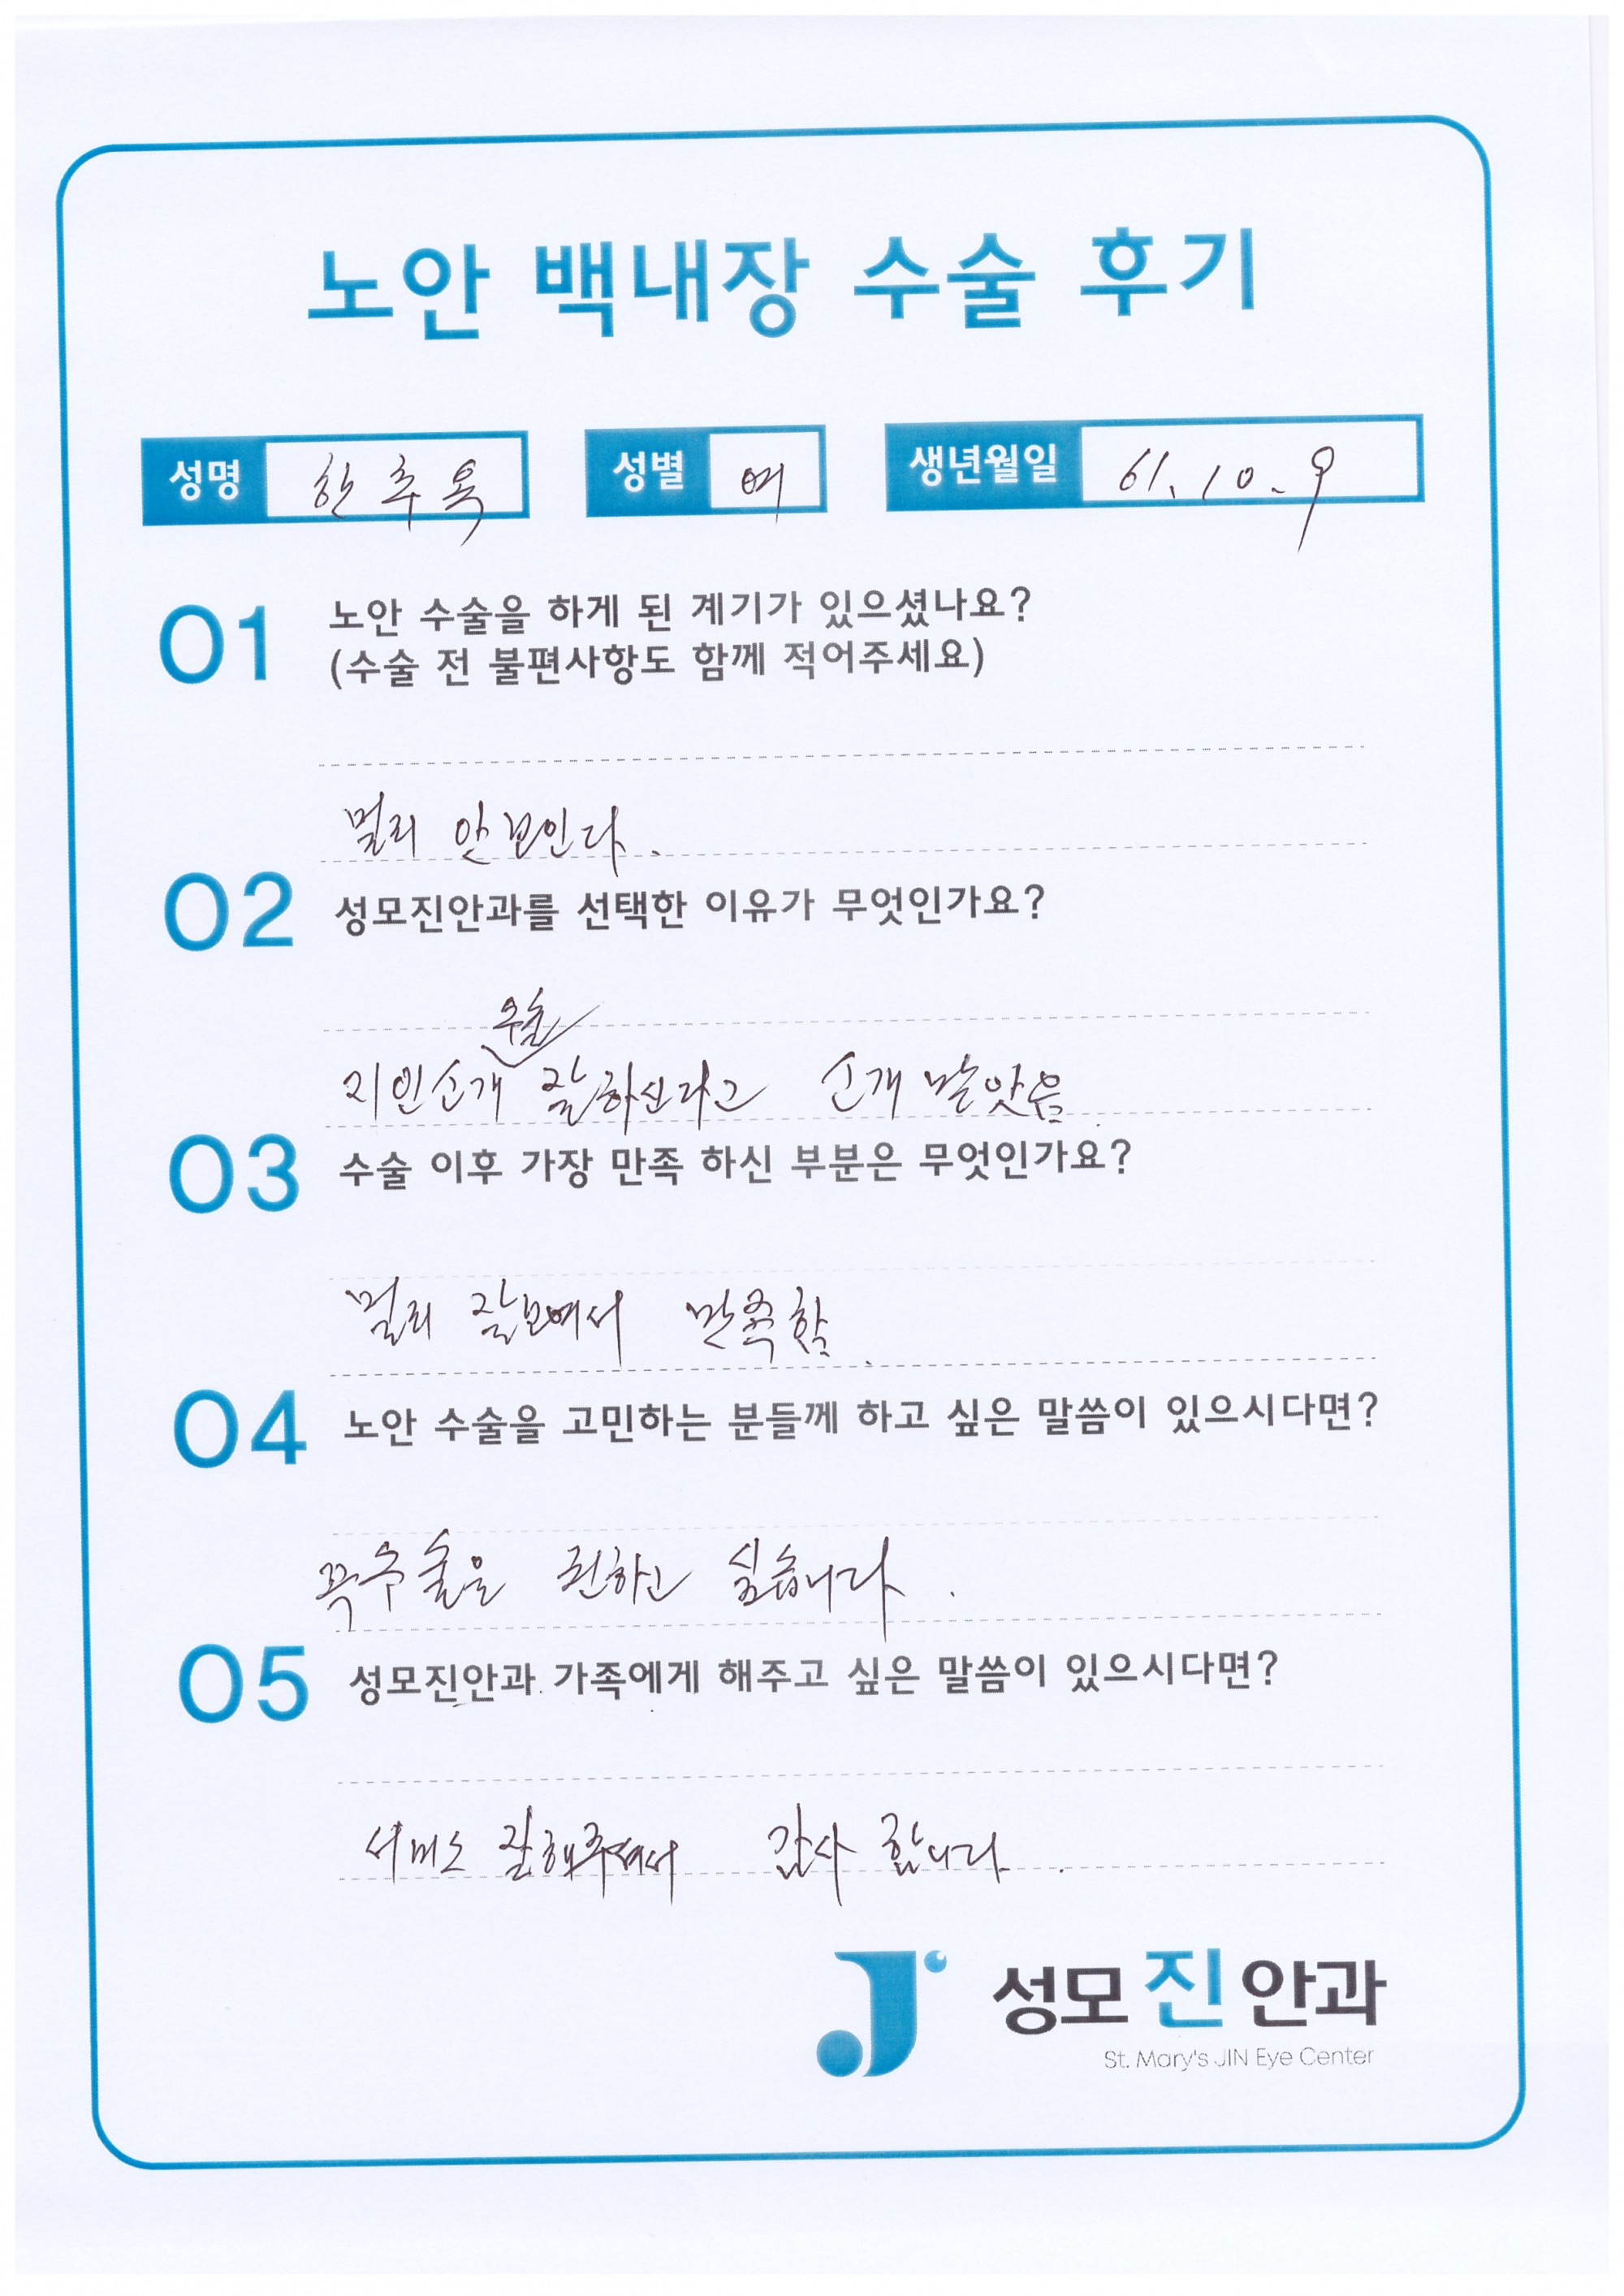 노안 백내장 수술 후기
성명 한추옥 성별 여 생년월일 61. 10. 9
01 노안 수술을 하게 된 계기가 있으셨나요?
(수술 전 불편사항도 함께 적어주세요)
멀리 안보인다.
02 성모진안과를 선택한 이유가 무엇인가요?
수술
지인소개 잘하신다고 소개 받았음.
03 수술 이후 가장 만족 하신 부분은 무엇인가요?
멀리 잘보여서 만족함.
04 노안 수술을 고민하는 분들께 하고 싶은 말씀이 있으시다면?
꼭수술을 권하고 싶습니다.
05 성모진안과 가족에게 해주고 싶은 말씀이 있으시다면?
서비스 잘해주셔서 감사 합니다.
성모진안과
St. Mary's JIN Eye Center